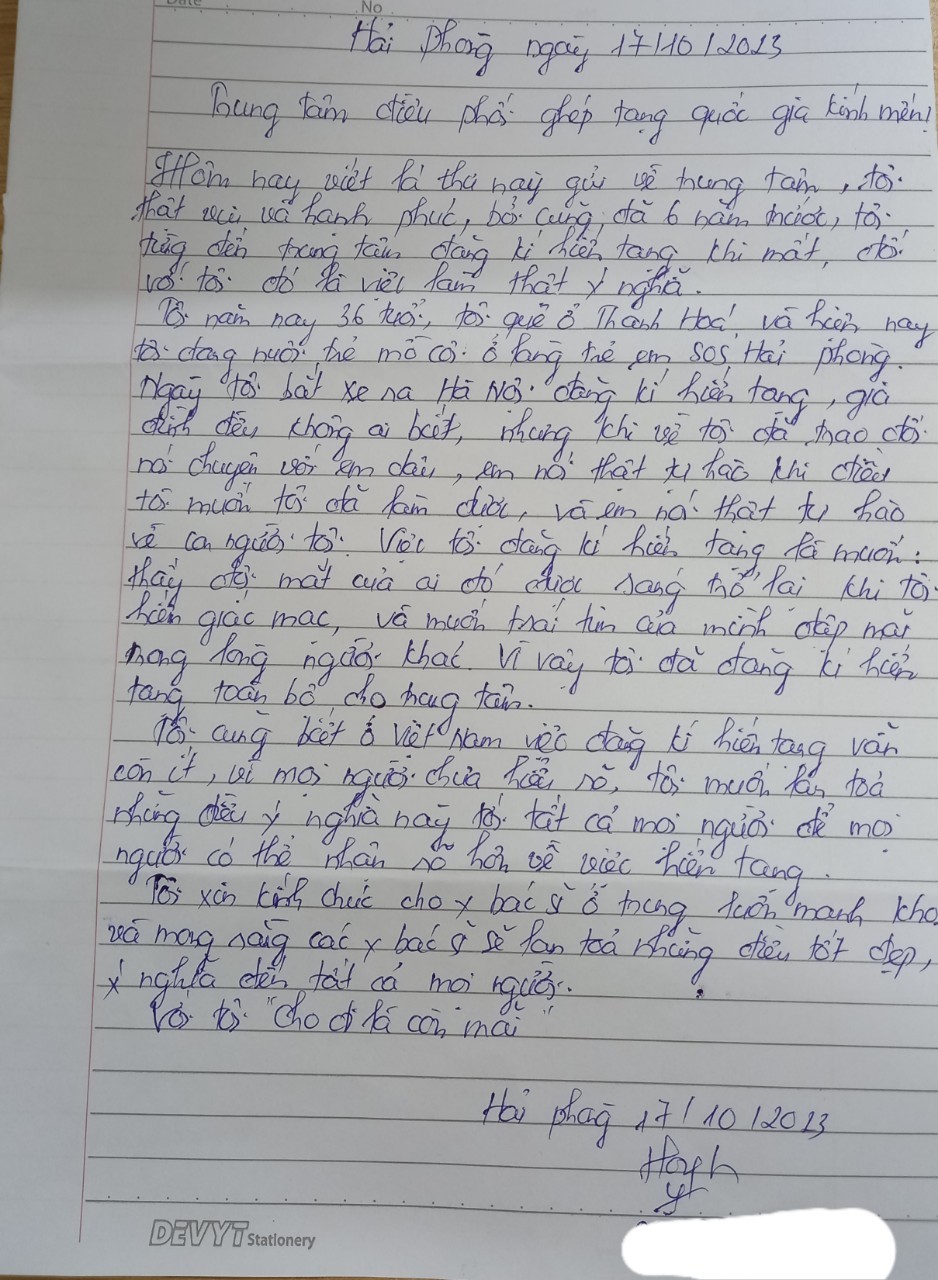 Date No
Hải phòng ngày 17/10/2023
Trung tâm điều phối ghép tạng quốc gia kính mến!
Hôm nay viết lá thư này gửi về trung tâm, tôi
thật vui và hạnh phúc, bởi cũng đã 6 năm trước, tôi
từng đến trung tâm đăng kí hiến tạng khi mất, đối
với tôi đó là việc làm thật ý nghĩa.
Tôi năm nay 36 tuổi, tôi quê ở Thanh Hoá và hiện nay
tôi đang nuôi trẻ mồ côi ở làng trẻ em SOS Hải phòng.
Ngày tôi bắt xe ra Hà Nội đăng kí hiến tạng, gia
đình đều không ai biết, nhưng khi về tôi đã trao đổi
nói chuyện với em dâu, em nói thật tự hào khi điều
tôi muốn tôi đã làm được, và em nói thật tự hào
về con người tôi. Việc tôi đăng kí hiến tạng là muốn:
thấy đôi mắt của ai đó được sáng trở lại khi tôi
hiến giác mạc, và muốn trái tim của mình đập mãi
trong lòng người khác. Vì vậy tôi đã đăng kí hiến
tạng toàn bộ cho trung tâm.
Tôi cũng biết ở Việt Nam việc đăng kí hiến tạng vẫn
còn ít, vì mọi người chưa hiểu rõ, tôi muốn lan toả
những điều ý nghĩa này tới tất cả mọi người để mọi
người có thể nhận rõ hơn về việc hiến tạng.
Tôi xin kính chúc cho y bác sĩ ở trung luôn mạnh khoẻ
và mong rằng các y bác sĩ sẽ lan toả những điều tốt đẹp,
ý nghĩa đến tất cả mọi người.
Với tôi "cho đi là còn mãi"
Hải phòng 17/10/2023
DEVYT Stationery